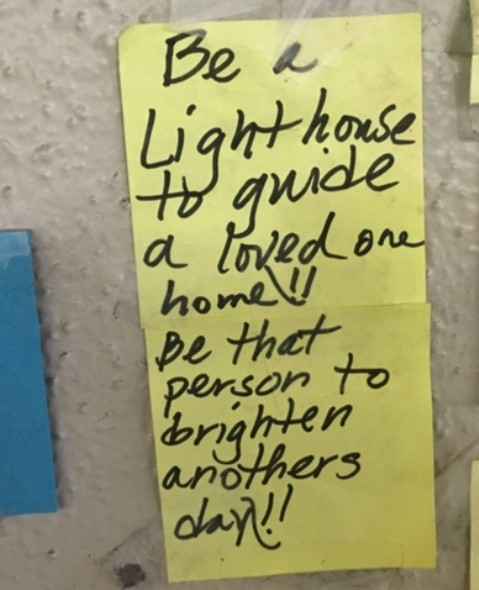 Be a
Lighthouse
to guide
a loved one
home!!
Be that
person to
brighten
anothers
day!!